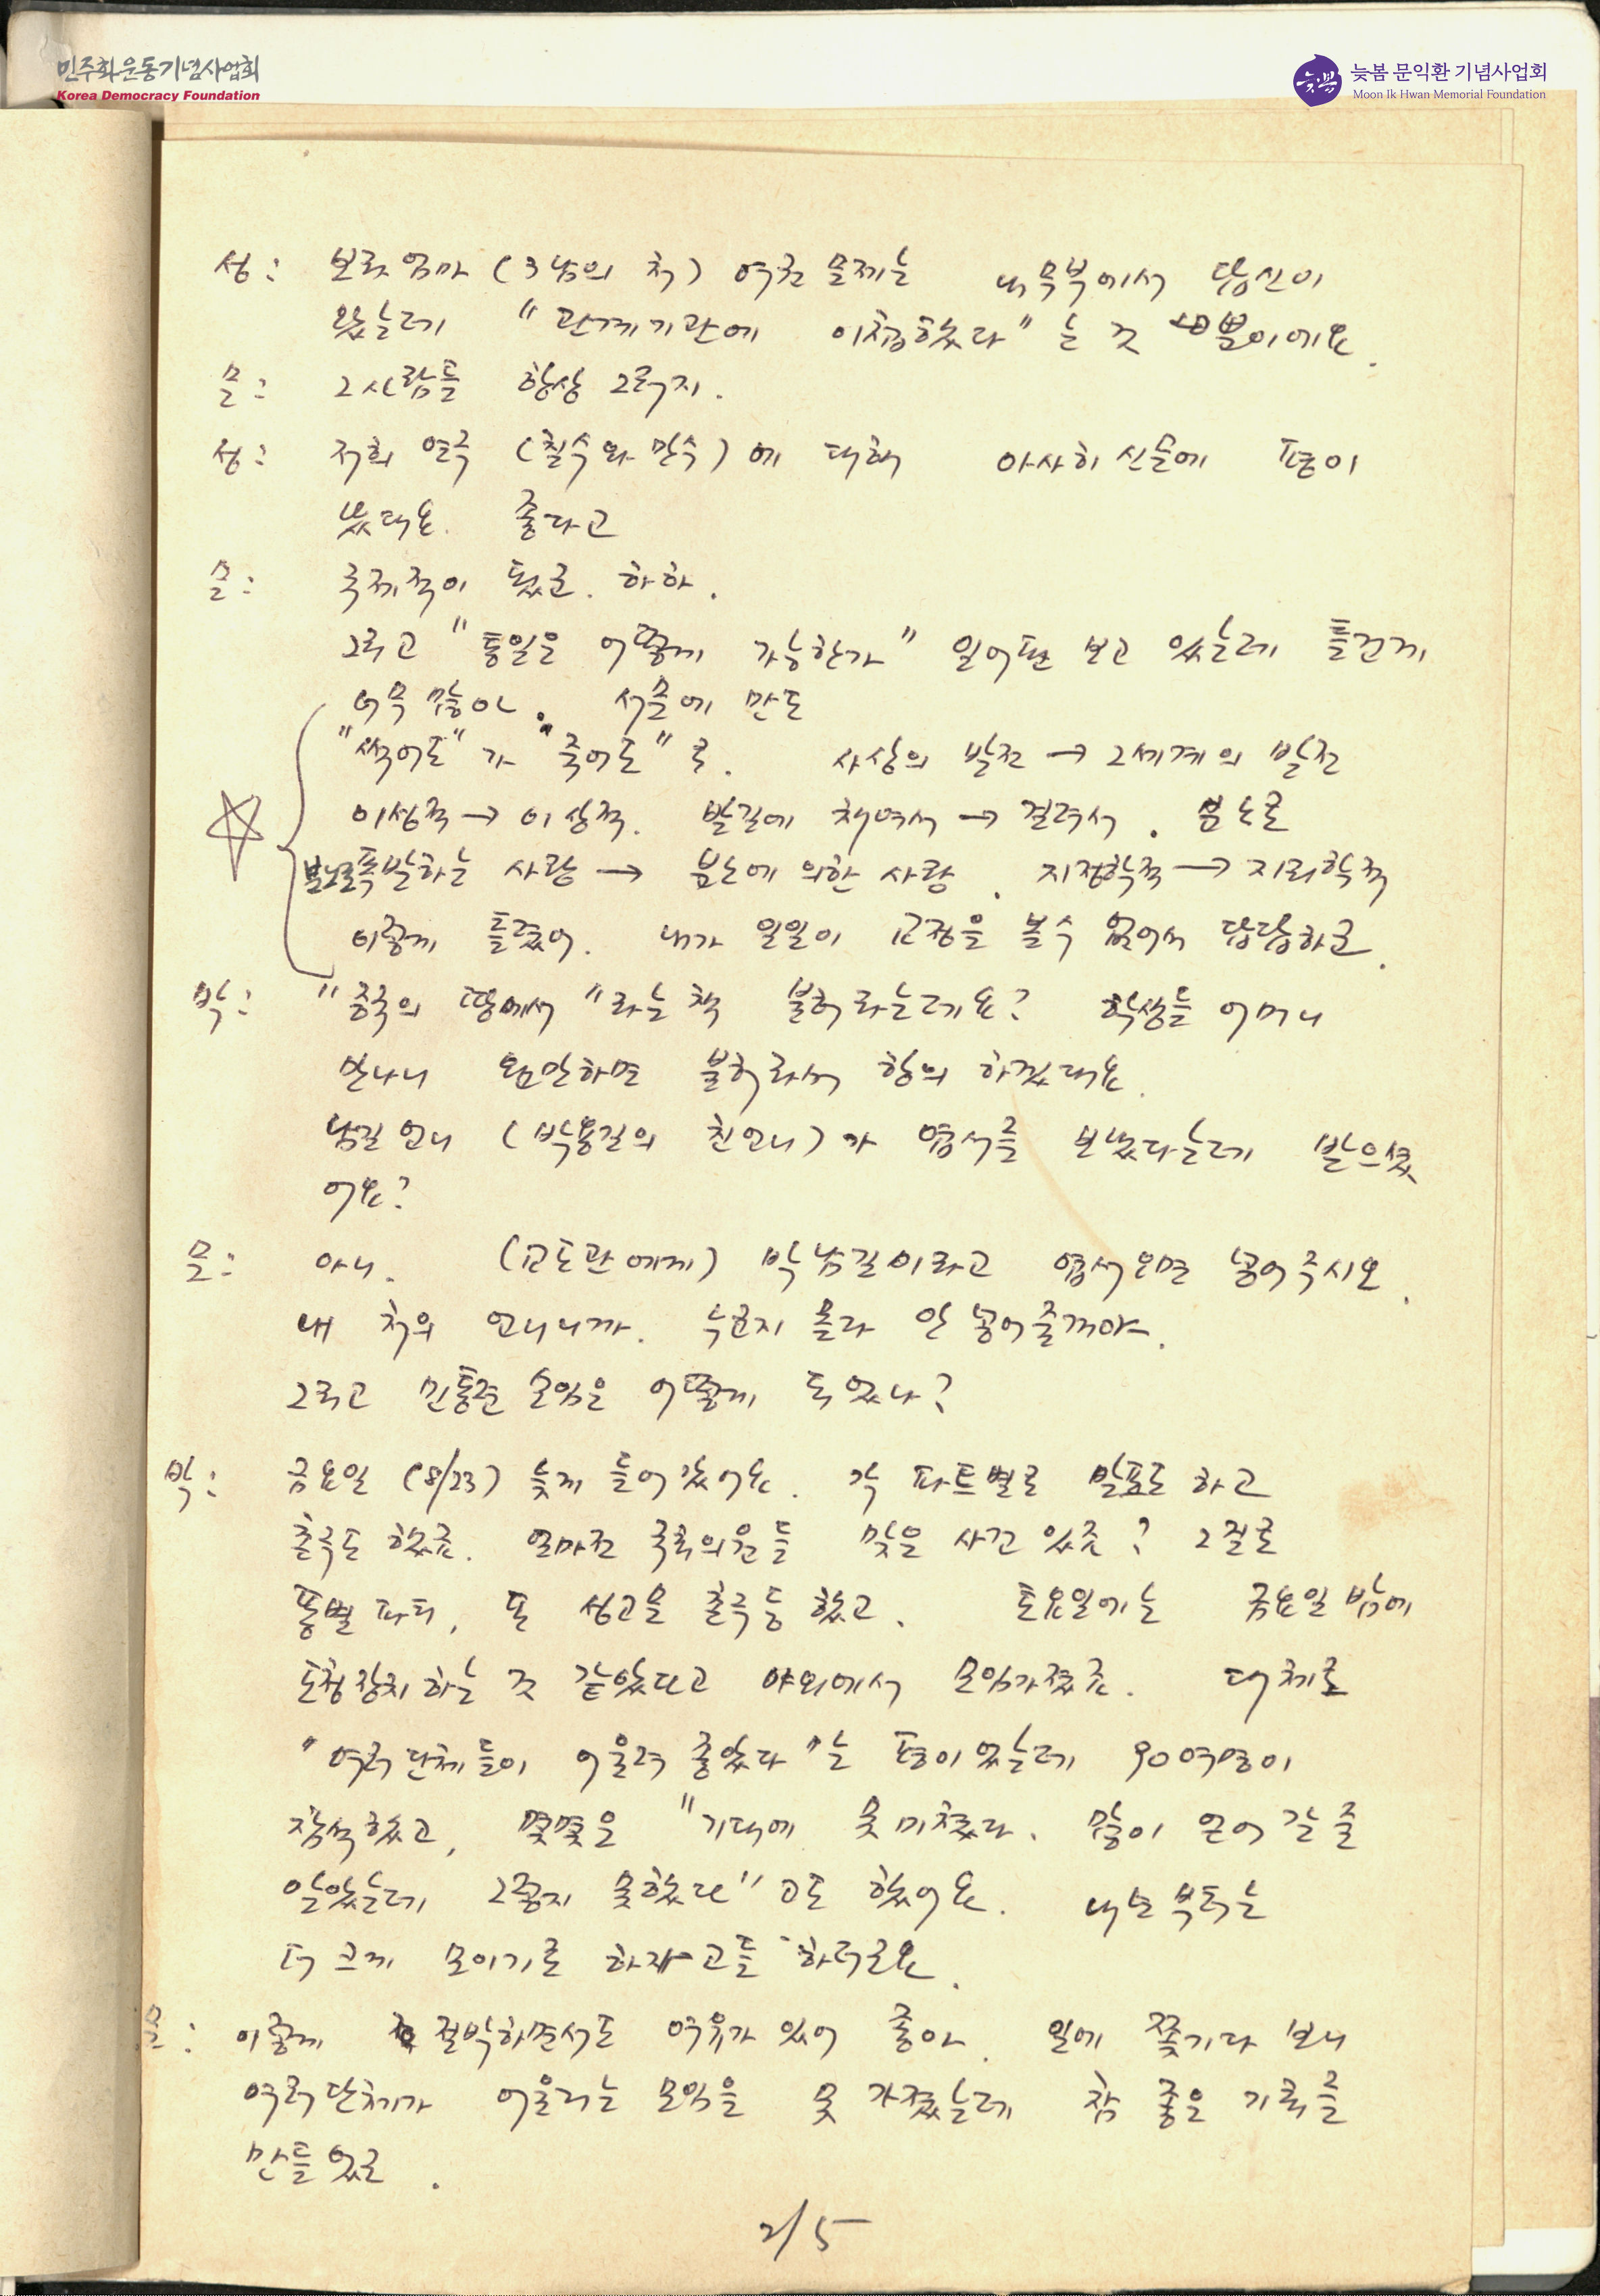 민주화운동기념사업회
Korea Democracy Foundation
늦봄 문익환 기념사업회
Moon Ik Hwan Memorial Foundation
성: 보라엄마 (3남의 처) 여권 문제는 내무부에서 답신이
왔는데 "관계기관에 이첩했다"는 것 뿐이에요.
문: 그 사람들 항상 그러지.
성: 저희 연극 (칠수와 만수)에 대해 아사히 신문에 평이
났대요. 좋다고
문: 국제적이 됐군. 하하.
그리고 "통일은 어떻게 가능한가" 읽어만 보고 있는데 틀린게
너무 많아. 서문에 만도
"썩어도"가 "죽어도"로. 사상의 발전 → 그 세계의 발전
이성적 → 이상적. 발길에 채여서 → 걸려서. 분노로
분노로 폭발하는 사랑 → 분노에 의한 사랑. 지정학적 → 지리학적
이렇게 틀렸어. 내가 일일이 교정을 볼수 없어서 답답하군.
박: "중국의 땅에서"라는 책 불허라는데요? 학생들 어머니
만나니 웬만하면 불허라서 항의 하겠대요.
남길 언니 (박용길의 친언니)가 엽서를 보냈다는데 받으셨
어요?
문: 아니. (교도관에게) 박남길이라고 엽서오면 넣어주시오.
내 처의 언니니까. 누군지 몰라 안 넣어줄꺼야.
그리고 민통련 모임은 어떻게 되었나?
박: 금요일 (8/23) 늦게 들어갔어요. 각 파트별로 발표도 하고
촌극도 했죠. 얼마전 국회의원들 맞은 사건 있죠? 그걸로
똥별파티, 또 성고문 촌극등 했고. 토요일에는 금요일밤에
도청장치하는 것 같았다고 야외에서 모임가졌죠. 대체로
"여러단체들이 어울려 좋았다"는 평이었는데 90여명이
참석했고, 몇몇은 "기대에 못미쳤다. 많이 얻어 갈 줄
알았는데 그렇지 못했다"고도 했어요. 내년부터는
더 크게 모이기로 하자고들 하더군요.
문: 이렇게 절박하면서도 여유가 있어 좋아. 일에 쫓기다 보니
여러단체가 어울리는 모임을 못 가졌는데 참 좋은 기회를
만들었군.
2/5